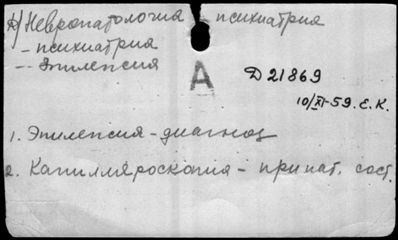 А) Невропатология психиатрия
– психиатрия
– Эпилепсия
А
Д 21869
10/XI-59. Е.К.
1. Эпилепсия – диагноз
2. Капилляроскопия – при пат. сост.